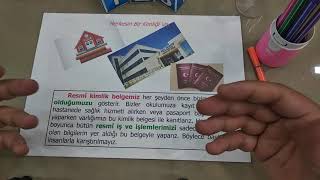 Herkesin Bir Kimliği Va
Resmî kimlik belgemiz her şeyden önce biz
olduğumuzu gösterir. Bizler okulumuza kayıt
hastanede sağlık hizmeti alırken veya pasaport
yaparken varlığımızı bu kimlik belgesi ile kanıtlarız.
boyunca bütün resmî iş ve işlemlerimizi sadec
olan bilgilerin yer aldığı bu belgeyle yaparız. Böylece
insanlarla karıştırılmayız.